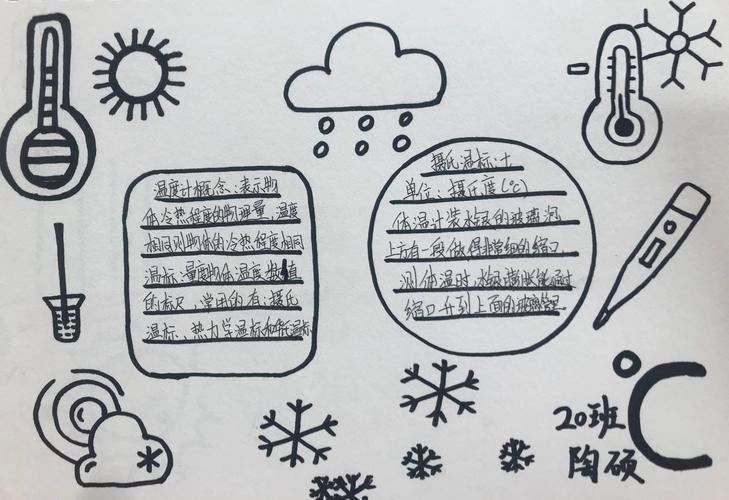 温度计概念:表示物
体冷热程度的物理量,温度
相同则物体的冷热程度相同
温标:量度物体温度数值
的标尺,常用的有:摄氏
温标、热力学温标和华氏温标
摄氏温标:t
单位:摄氏度(℃)
体温计装水银的玻璃泡
上方有一段做得非常细的缩口
测体温时,水银膨胀能通过
缩口升到上面的玻璃管里
℃
20班
陶硕